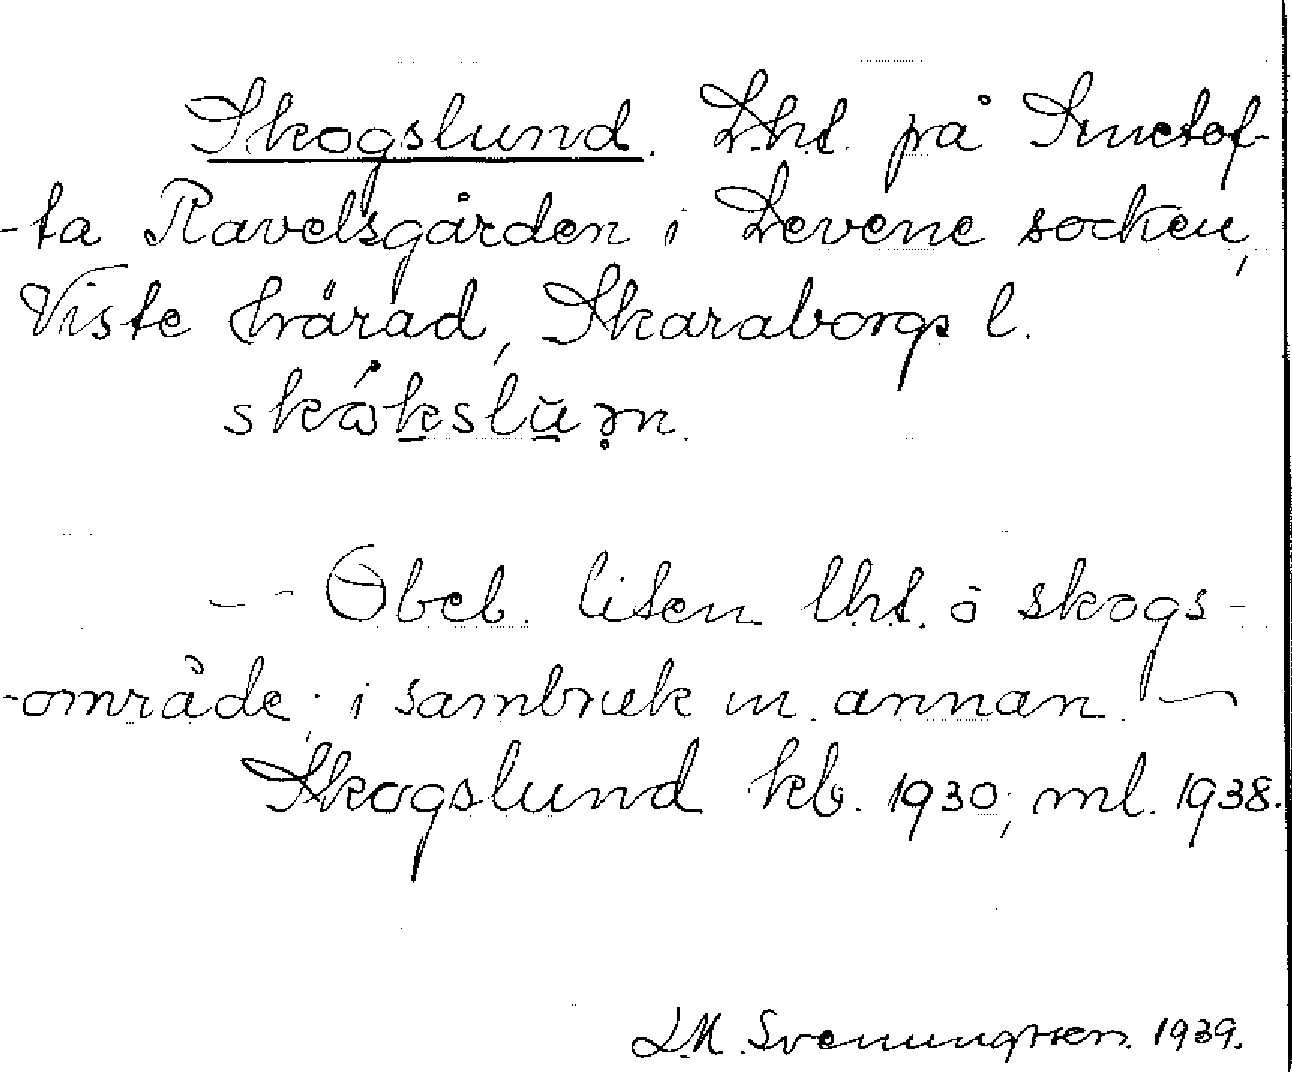 Skogslund. Lht. på Smetof-
-ta Ravelsgården i Levene socken,
Viste härad, Skaraborgs l.
– Obeb. liten lht. å skogs-
-område; i sambruk m. annan. –
Skogslund kb. 1930; ml. 1938.
L.M. Svenungsson. 1939.